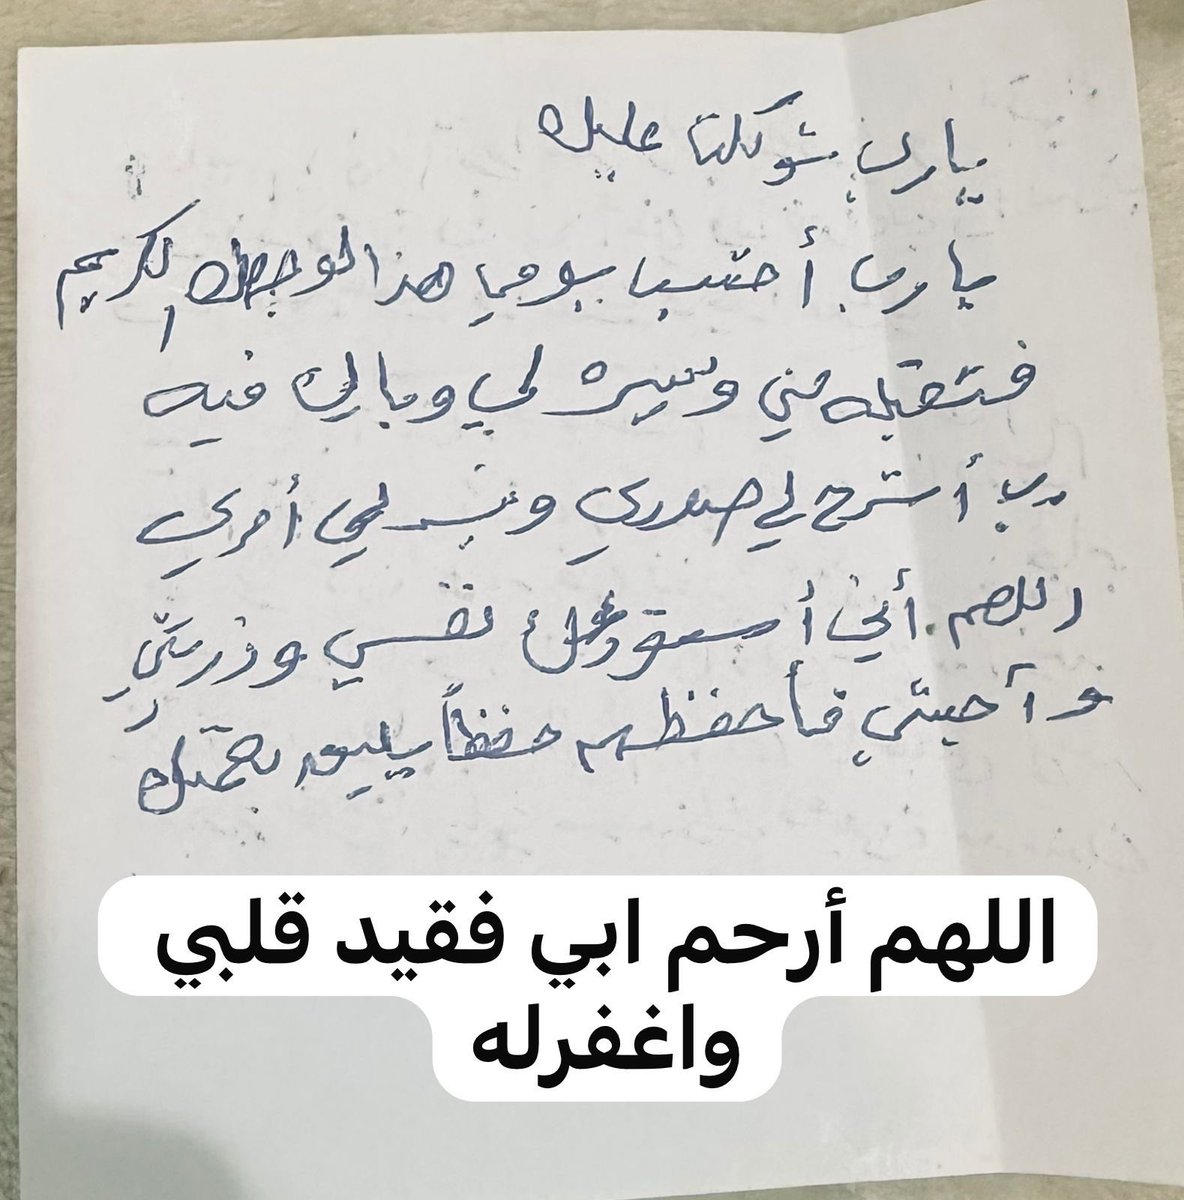 يارب توكلنا عليك
يارب أحتسب يومي هذا لوجهك الكريم
فتقبله مني ويسره لي وبارك فيه
رب أشرح لي صدري ويسر لي أمري
اللهم أني أستودعك نفسي وذريتي
و أحبتي فأحفظهم حفظاً يليق
اللهم أرحم ابي فقيد قلبي
واغفرله